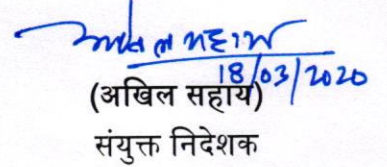 अखिल सहाय
18/03/2020
(अखिल सहाय)
संयुक्त निदेशक